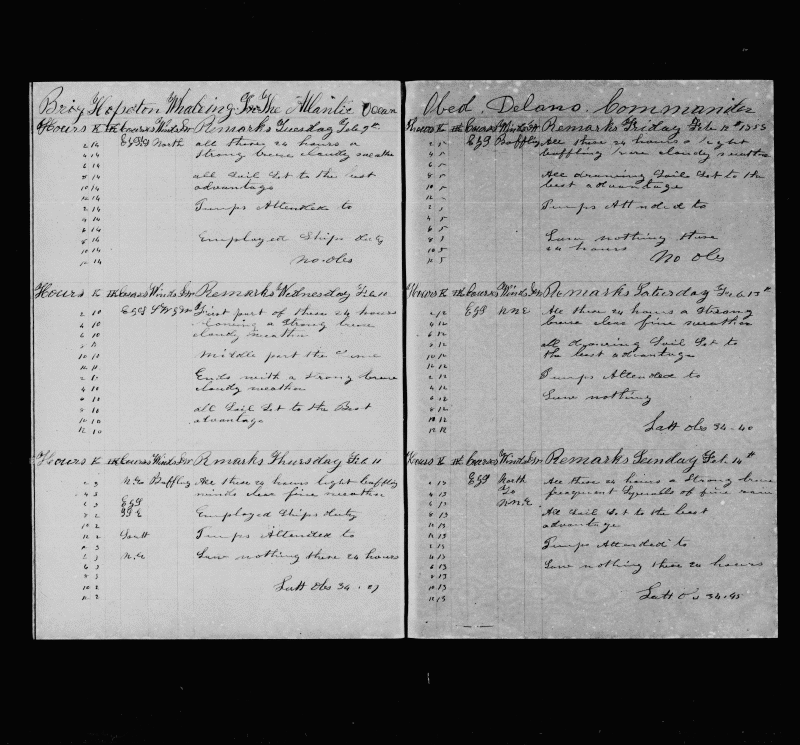 Brig Hopeton Whaling In The Atlantic Ocean
Hours K Courses Winds Remarks Tuesday Feb 9th
2 14 North all these 24 hours a
4 14 strong breeze cloudy weather
6 14
8 14 all Sail Set to the best
10 14 advantage
12 14
2 14 Pumps Attended to
4 14
6 14
8 14 Employed Ships duty
10 14
12 14 No Obs
Hours K Courses Winds Remarks Wednesday Feb 10
2 10 First part of these 24 hours
4 10 a Strong breeze
cloudy weather
10 11 Middle part the Same
12 11
2 11 Ends with a strong breeze
4 10 cloudy weather
8 10 all Sail Set to the Best
10 10 advantage
12 10
Hours K Courses Winds Remarks Thursday Feb 11
2 3 Baffling All these 24 hours light baffling
4 3 winds clear fine weather
6 3
8 2 Employed Ships duty
10 2
12 2 South Pumps Attended to
3
3 Saw nothing these 24 hours
3
3
10 2 Latt Obs 34-
12 2
Obed Delano Commander
Hours K Courses Winds Remarks Friday Feb 12th 1858
2 5 Baffling All these 24 hours a light
4 5 baffling cloudy weather
6 5
8 5 All drawing Sail Set to the
10 5 best advantage
12 5
2 5 Pumps Attended to
4 5
6 5
8 5 Saw nothing these
10 5 24 hours
12 5 No Obs
Hours K Courses Winds Remarks Saturday Feb 13th
2 12 NNE All these 24 hours a Strong
4 12 breeze clear fine weather
6 12
8 12 all drawing Sail Set to
10 12 the best advantage
12 12
2 12 Pumps Attended to
4 12
6 12 Saw nothing
8 12
10 12
12 12 Latt Obs 34-40
Hours K Courses Winds Remarks Sunday Feb 14th
2 13 North All these 24 hours a Strong breeze
4 13 To frequent Squalls of fine rain
6 13 NNE
8 13 All Sail Set to the best
10 13 advantage
12 13
2 13 Pumps Attended to
4 13
6 13 Saw nothing these 24 hours
8 13
10 13
12 13 Latt Obs 34-45